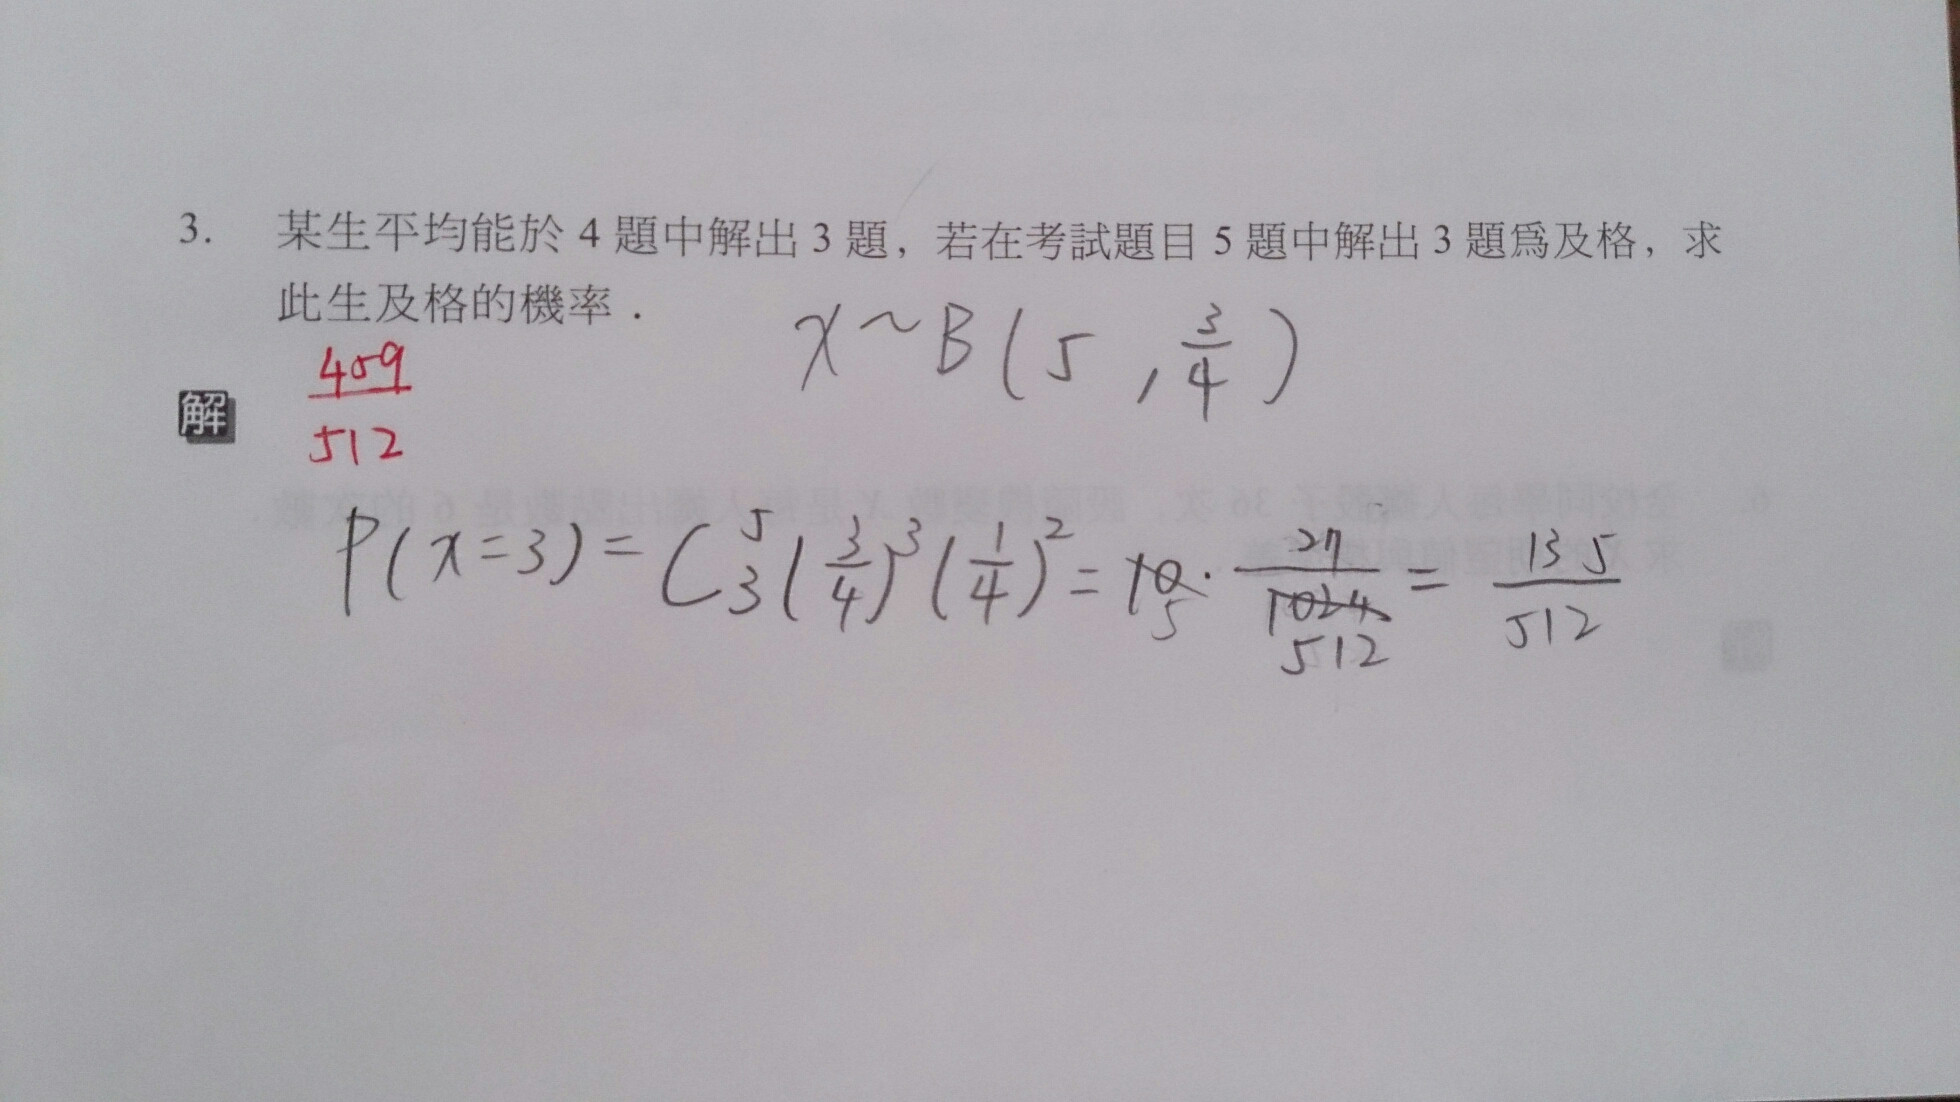 3. 某生平均能於 4 題中解出 3 題，若在考試題目 5 題中解出 3 題爲及格，求
此生及格的機率．
X ~ B ( 5 , 3/4 )
459/512
解
P(x=3) = C⁵₃ (3/4)³ (1/4)² = 10 5 · 27/1024 512 = 135/512